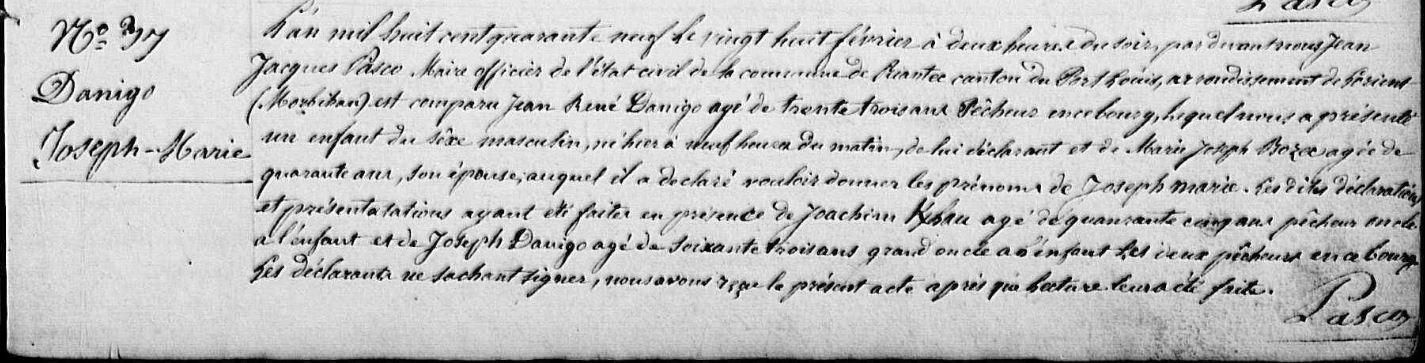 Pasco
N.º 37
Danigo
Joseph-Marie
L'an mil huit cent quarante neuf le vingt huit février à deux heures du soir, par devant nous Jean
Jacques Pasco Maire officier de l'état civil de la commune de Riantec canton du Port Louis, arrondissement de Lorient
(Morbihan) est comparu Jean René Danigo agé de trente trois ans Pêcheur en ce bourg, lequel nous a présenté
un enfant du sèxe masculin, né hier à neuf heures du matin, de lui déclarant et de Marie Joseph Bozec agée de
quarante ans, son épouse, auquel il a déclaré vouloir donner les prénoms de Joseph marie. Les dites déclarations
et présentatations ayant été faites en présence de Joachim agé de quanrante cinq ans pêcheur oncle
a l'enfant et de Joseph Danigo agé de soixante trois ans grand oncle a l'enfant Les deux pêcheurs en ce bourg
Les déclarants ne sachant signer, nous avons le présent acte après que lecture leur a été faite.
Pasco